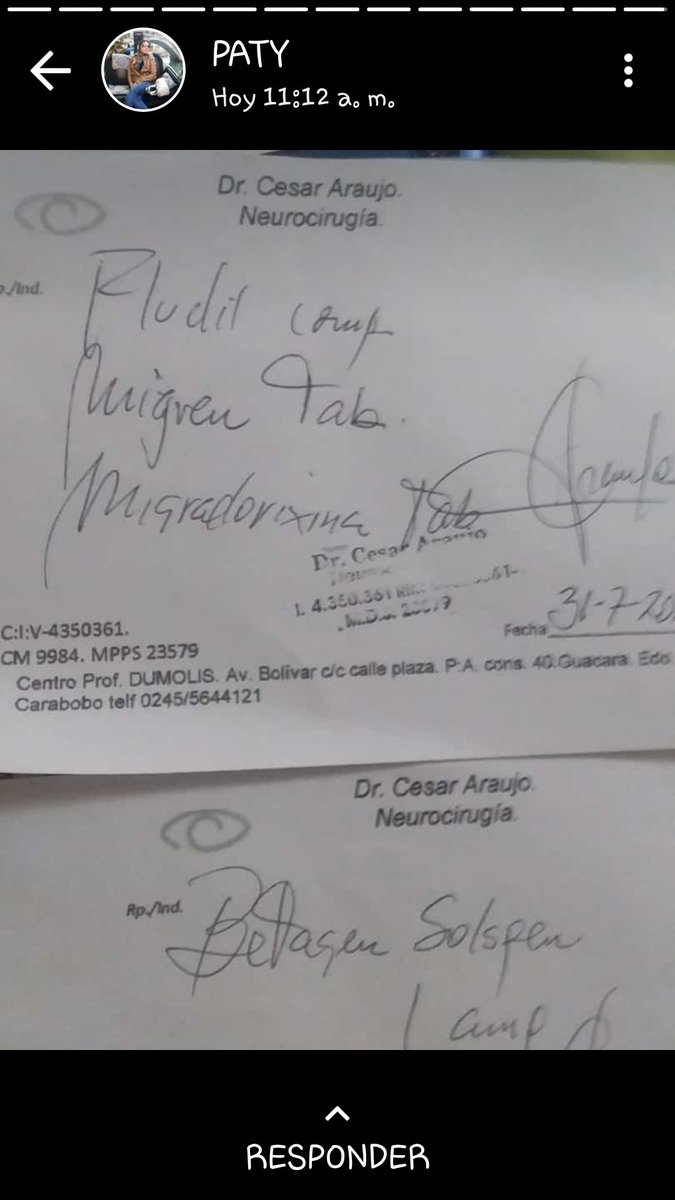 PATY
Hoy 11:12 a. m.
Dr. Cesar Araujo.
Neurocirugía.
p./Ind.
Fludil comp
Migren Tab.
Migradorixina Tab
Dr. Cesar Araujo
I. 4.350.361
C:I:V-4350361.
CM 9984. MPPS 23579
Fecha 31-7-20
Centro Prof. DUMOLIS. Av. Bolivar c/c calle plaza. P.A. cons. 40.Guacara. Edo
Carabobo telf 0245/5644121
Dr. Cesar Araujo.
Neurocirugía.
Rp./Ind.
Betagen Solspen
1 amp
RESPONDER